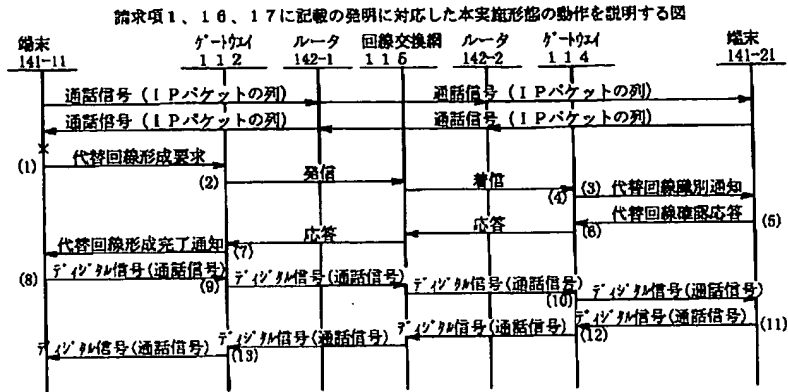 請求項1、16、17に記載の発明に対応した本実施形態の動作を説明する図
端末 ゲートウエイ ルータ 回線交換網 ルータ ゲートウエイ 端末
141-11 112 142-1 115 142-2 114 141-21
通話信号(IPパケットの列) 通話信号(IPパケットの列)
通話信号(IPパケットの列) 通話信号(IPパケットの列)
(1) 代替回線形成要求
(2) 発信 着信 (4) (3) 代替回線識別通知
代替回線確認応答 (5)
代替回線形成完了通知 (7) 応答 応答 (6)
(8) ディジタル信号(通話信号) (9) ディジタル信号(通話信号) ディジタル信号(通話信号) (10) ディジタル信号(通話信号)
ディジタル信号(通話信号) (13) ディジタル信号(通話信号) ディジタル信号(通話信号) (12) ディジタル信号(通話信号) (11)